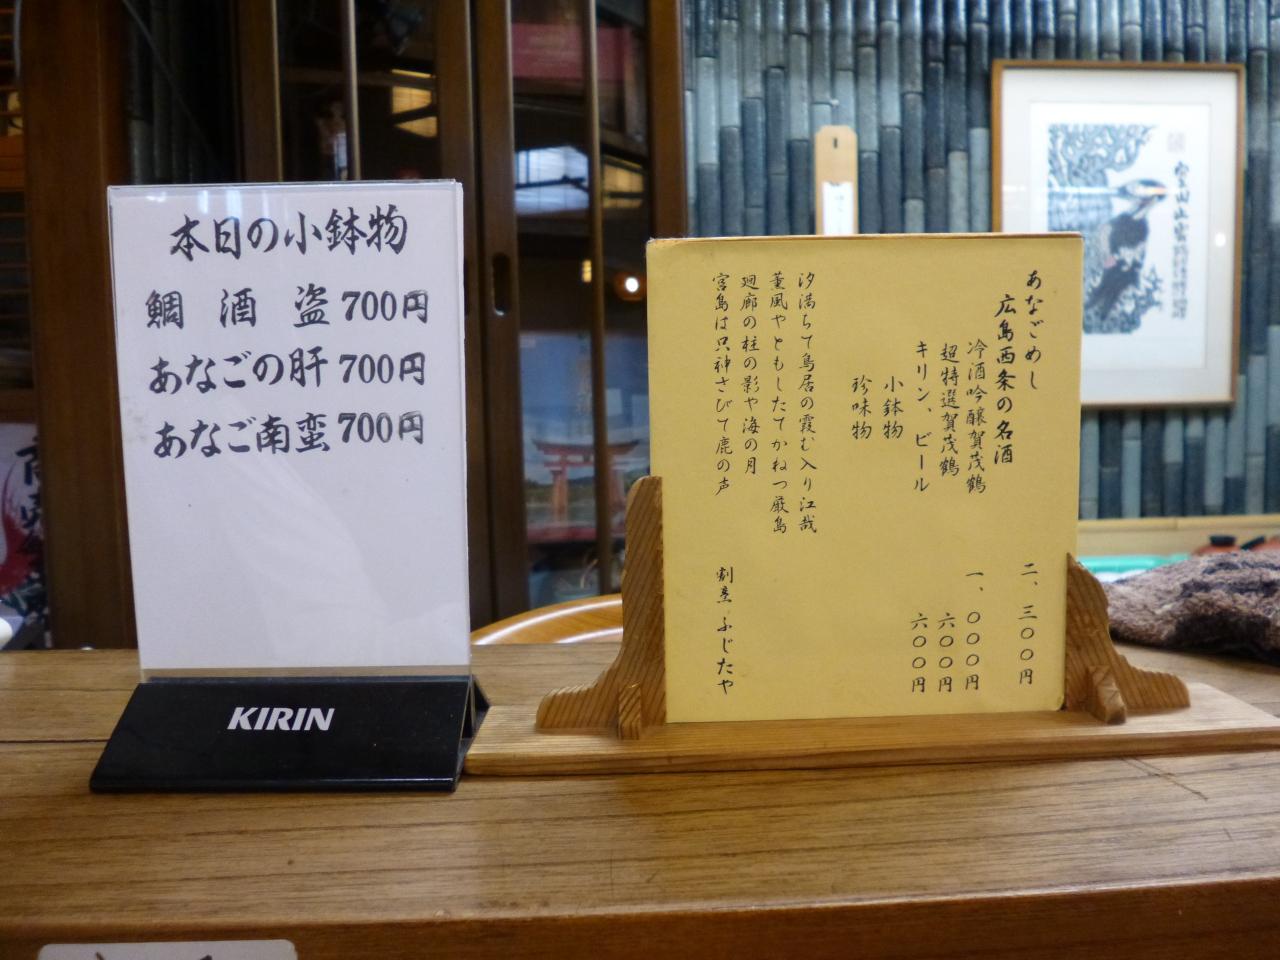 本日の小鉢物
鯛酒盗 700円
あなごの肝 700円
あなご南蛮 700円
KIRIN
あなごめし 二、三〇〇円
広島西条の名酒
冷酒吟醸賀茂鶴 一、〇〇〇円
超特選賀茂鶴 六〇〇円
キリン、ビール 六〇〇円
小鉢物
珍味物
汐満ちて鳥居の霞む入り江哉
薫風やともしたてかねつ厳島
廻廊の柱の影や海の月
宮島は只神さびて鹿の声
割烹 ふじたや